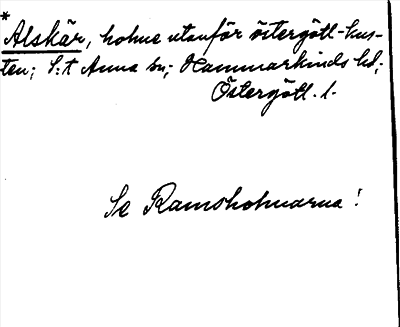 *
Alskär, holme utanför östergötl-kus-
ten; S:t Anna sn; Hammarkinds hd;
Östergötl. l.
Se Ramsholmarna!